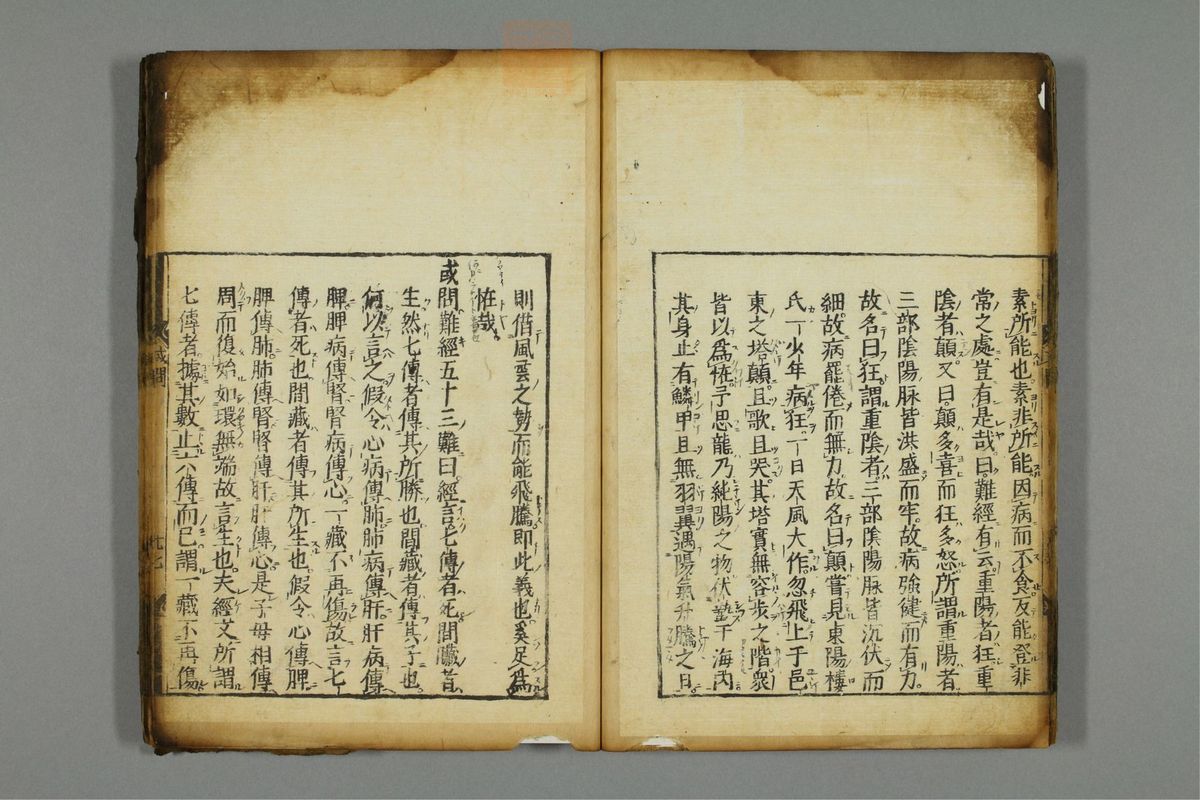 素所能也素非所能因病而不食反能登非
常之處豈有是哉曰難經有云重陽者狂重
陰者顛又曰顛多喜而狂多怒所謂重陽者
三部陰陽脉皆洪盛而牢故病強健而有力
故名曰狂謂重陰者三部陰陽脉皆沉伏而
細故病罷倦而無力故名曰顛嘗見東陽樓
氏一少年病狂一日天風大作忽飛上于邑
東之塔顛且歌且哭其塔實無容步之階衆
皆以爲恠予思龍乃純陽之物伏蟄于海内
其身止有鱗甲且無羽翼遇陽氣升騰之日
則借風雲之勢而能飛騰即此義也奚足爲
恠哉
或問難經五十三難曰經言七傳者死間藏者
生然七傳者傳其所勝也間藏者傳其子也
何以言之假令心病傳肺肺病傳肝肝病傳
脾脾病傳腎腎病傳心一藏不再傷故言七
傳者死也間藏者傳其所生也假令心傳脾
脾傳肺肺傳腎腎傳肝肝傳心是子母相傳
周而復始如環無端故言生也夫經文所謂
七傳者據其數止六傳而已謂一藏不再傷
或問